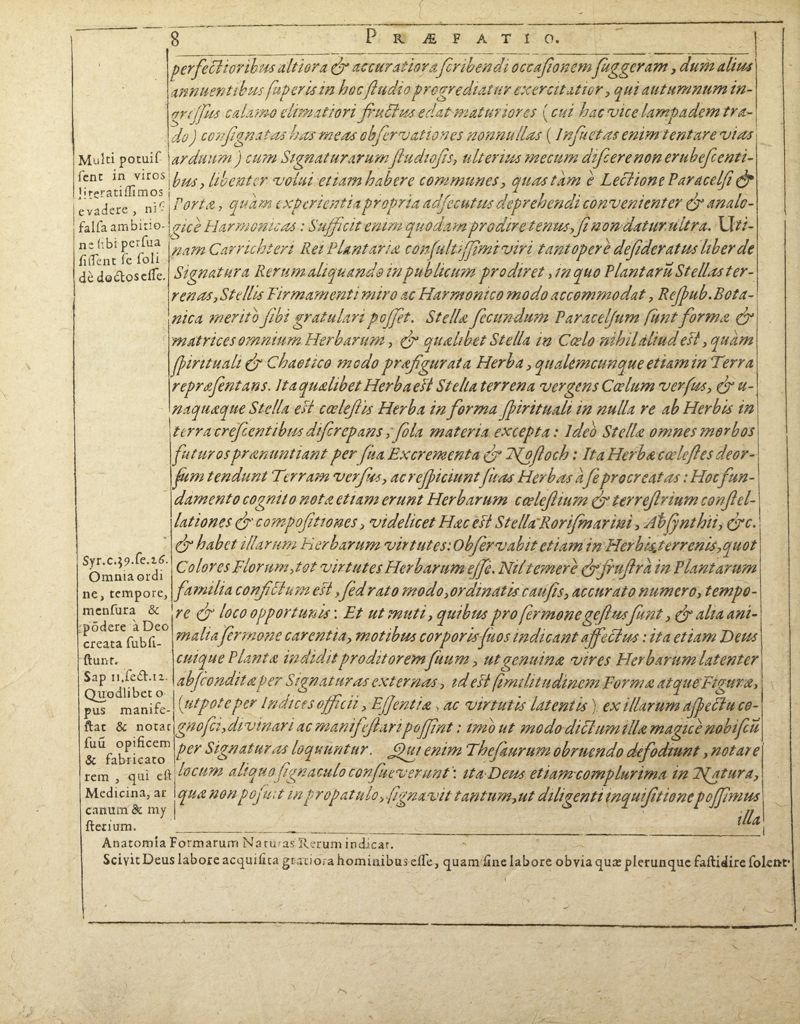 8 PRÆFATIO.
perfectioribus altiora & accuratiora scribendi occasionem suggeram, dum alius
annuentibus superis in hoc studio progrediatur exercitatior, qui autumnum in-
gressus calamo elimatiori fructus edat maturiores (cui hac vice lampadem tra-
do) consignatas has meas observationes nonnullas (Insuetas enim tentare vias
arduum) cum Signaturarum studiosis, ulterius mecum discere non erubescenti-
bus, libenter volui etiam habere communes, quas tàm è Lectione Paracelsi &
Portæ, quàm experientia propria adsecutus deprehendi convenienter & analo-
gicè Harmonicas: Sufficit enim quodam prodire tenus, si non datur ultra. Uti-
nam Carrichteri Rei Plantariæ consultissimi viri tantoperè desideratus liber de
Signatura Rerum aliquando in publicum prodiret, in quo Plantarũ Stellas ter-
renas, Stellis Firmamenti miro ac Harmonico modo accommodat, Respub. Bota-
nica meritò sibi gratulari posset. Stellæ secundum Paracelsum sunt formæ &
matrices omnium Herbarum, & quælibet Stella in Cœlo nihil aliud est, quàm
spirituali & Chaotico modo præfigurata Herba, qualemcunque etiam in Terra
repræsentans. Ita quælibet Herba est Stella terrena vergens Cœlum versus, & u-
naquæque Stella est cœlestis Herba in forma spirituali in nulla re ab Herbis in
terra crescentibus discrepans, sola materia excepta: Ideò Stellæ omnes morbos
futuros prænuntiant per sua Excrementa & Nostoch: Ita Herbæ cælestes deor-
sum tendunt Terram versus, ac respiciunt suas Herbas à se procreatas: Hoc fun-
damento cognito notæ etiam erunt Herbarum cœlestium & terrestrium constel-
lationes & compositiones, videlicet Hæc est Stella Rorismarini, Absynthii, &c.
& habet illarum Herbarum virtutes: Observabit etiam in Herbis terrenis, quot
Colores Florum, tot virtutes Herbarum esse. Nil temerè & frustrà in Plantarum
familia confictum est, sed rato modo, ordinatis causis, accurato numero, tempo-
re & loco opportunis: Et ut muti, quibus pro sermone gestus sunt, & alia ani-
malia sermone carentia, motibus corporis suos indicant affectus: ita etiam Deus
cuique Plantæ indidit proditorem suum, ut genuinæ vires Herbarum latenter
absconditæ per Signaturas externas, id est similitudinem Formæ atque Figuræ,
(utpote per Indices officii, Essentiæ, ac virtutis latentis) ex illarum aspectu co-
gnosci, divinari ac manifestari possint: imò ut modo dictum illæ magicè nobiscũ
per Signaturas loquuntur. Qui enim Thesaurum obruendo defodiunt, notare
locum aliquo signaculo consueverunt: ita Deus etiam complurima in Natura,
quæ non posuit in propatulo, signavit tantum, ut diligenti inquisitione possimus
illa
Multi potuis
sent in viros
literatissimos
evadere, nisi
falsa ambitio-
ne sibi persua
sissent se soli
dè doctos esse.
Syr.c.39.se.26.
Omnia ordi
ne, tempore,
mensura &
põdere à Deo
creata subsi-
stunt.
Sap 11.sect.12.
Quodlibet o
pus manife-
stat & notat
suũ opificem
& fabricato
rem, qui est
Medicina, ar
canum & my
sterium.
Anatomia Formarum Naturas Rerum indicat.
Scivit Deus labore acquisita gratiora hominibus esse, quam sine labore obvia quæ plerunque fastidire solent.